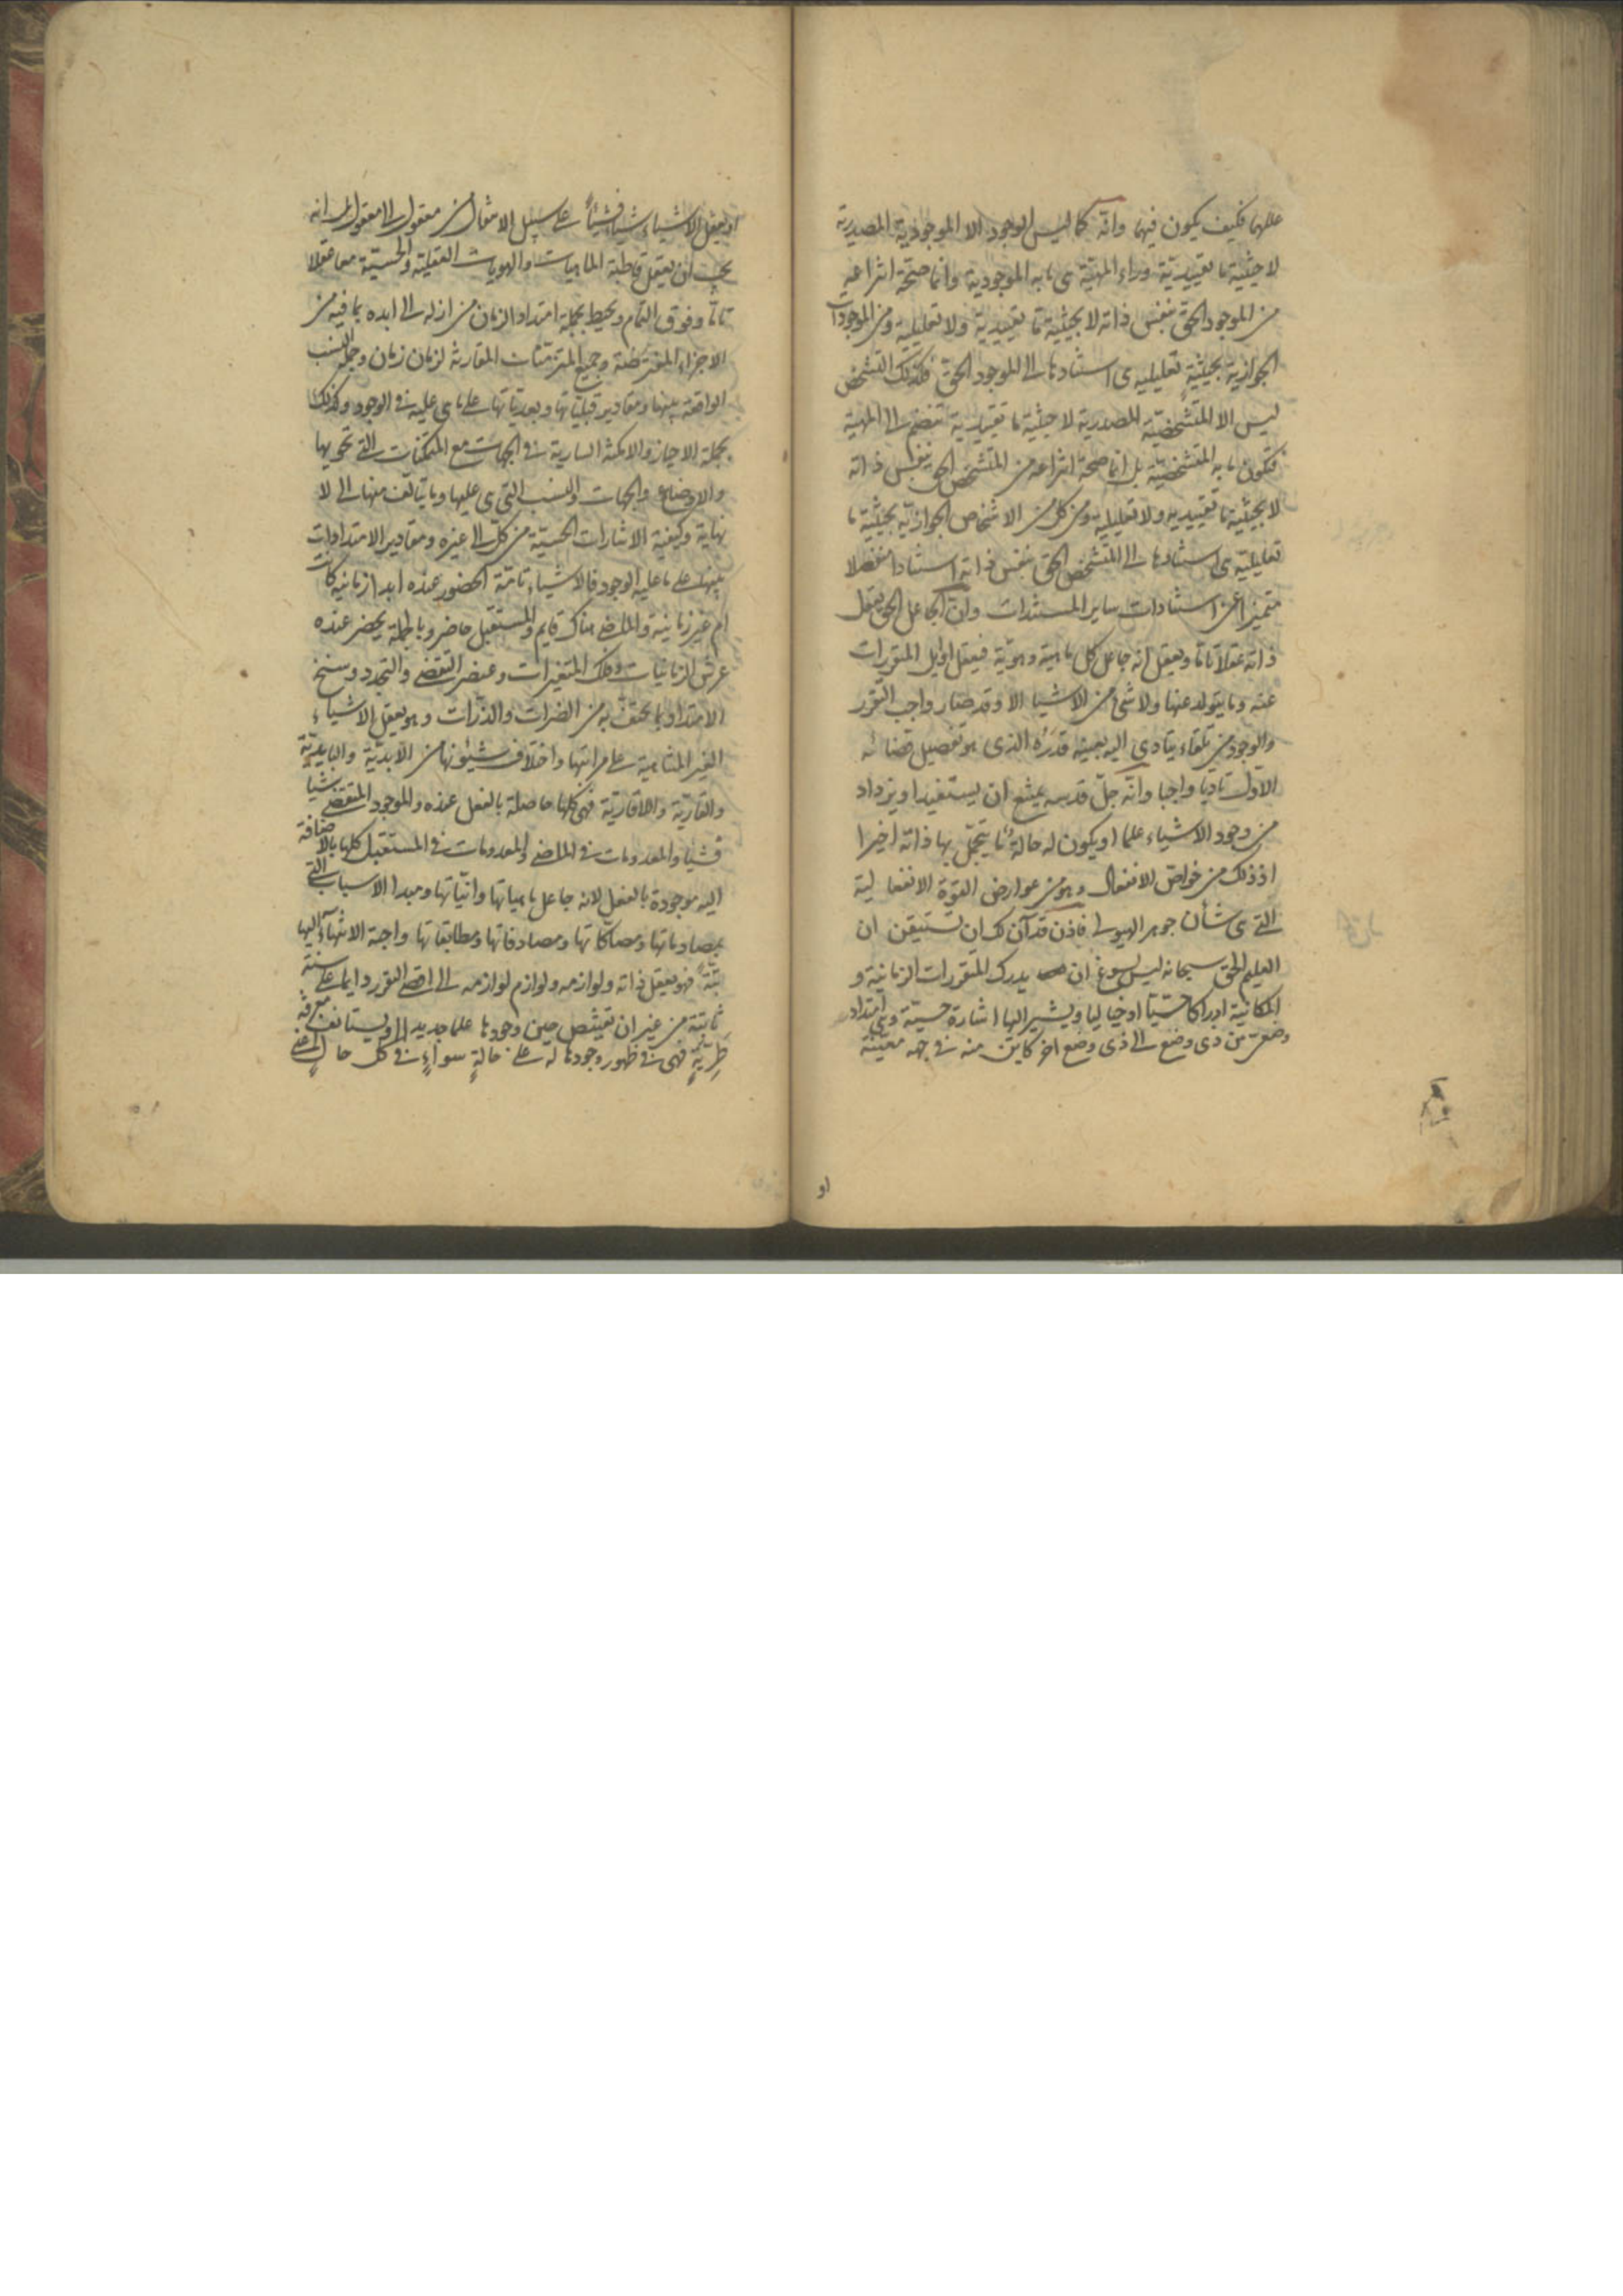 عللها فكيف يكون فيها وانّه كما ليس الوجود الا الموجودية المصدرية
لا حيثية ما تقييدية وراء المهيّة هى ما به الموجودية وانما صحّة انتزاعه
من الموجود الحق بنفس ذاته لا بحيثية ما تقييدية ولا تعليلية ومن الموجودات
الجوازية بحيثية تعليلية هى استنادها الى الموجود الحق فكذلك التشخص
ليس الا المتشخصيّة المصدرية لا حيثية ما تقييدية تنضم الى المهية
فتكون ما به المتشخصيّة بل انما صحة انتزاعه من المتشخص الحق بنفس ذاته
لا بحيثية ما تقييدية ولا تعليلية ومن كل من الاشخاص الجوازية بحيثية ما
تعليلية هى استنادها الى المتشخص الحق بنفس ذاته استنادا منفصلا
متميزا عن استنادات ساير المستندات وانّ الجاعل الحق يعقل
ذاته عقلا تاما ويعقل انه جاعل كل ماهية وهويّة فيعقل اوايل المتقررات
عنه وما يتولد عنها ولا شئ من الاشيا الا وقد صار واجب التقرر
والوجود من تلقاء يتادى اليه بعينه قدره الذى هو تفصيل قضائه
الاوّل تاديا واجبا وانّه جلّ قدسه يمتنع ان يستفيد او يزداد
من وجود الاشياء علما او يكون له حالة ما يتجمّل بها ذاته اخيرا
اذ ذلك من خواص الانفعال وهو من عوارض القوة الانفعالية
التى هى شأن جوهر الهيولى فاذن قد آن لك ان تستيقن ان
العليم الحق سبحانه ليس يسوغ ان يدرك المتقررات الزمانية و
المكانية ادراكا حسّيّا او خياليا ويشير اليها اشارة حسيّة وهى امتداد
وضعىّ من ذى وضع الى ذى وضع اخر كاين منه فى جهة معيّنة
او
او يعقل الاشياء شيئا فشيئاً على سبيل الانتقال من معقول الى معقول بل انه
يجب ان يعقل قاطبة الماهيات والهويات العقلية والحسيّة معا عقلا
تاما وفوق التمام ويحيط بجملة امتداد الزمان من ازله الى ابده بما فيه من
الاجزاء المفترضة وجميع المتزمّنات المقارنة لزمان زمان وجملة النسب
الواقعة بينها ومقادير قبليّاتها وبعديّاتها على ما هى عليه فى الوجود وكذلك
بجملة الاحياز والامكنة السارية فى الجهات مع المتمكنات التى تحويها
والاوضاع والجهات والنسب التى هى عليها وما يتالف منها الى لا
نهاية وكيفية الاشارات الحسيّة من كلّ الى غيره ومقادير الامتدادات
بينها على ما عليه الوجود فالاشياء تامّة الحضور عنده ابدا زمانية كانت
ام غير زمانية والماضى هناك قايم والمستقبل حاضر وبالجملة يحضر عنده
عرش الزمانيات وفلك المتغيرات وعنصر التقضى والتجدد وسنخ
الامتداد وما يحتفّ به من الضرات والذرّات وهو يعقل الاشياء
الغير المتناهية على مراتبها واختلاف شيئونها من الابديّة والبايديّة
والقاريّة واللاقاريّة فهى كلها حاصلة بالفعل عنده والموجود المتقضى شيئا
فشيا والمعدومات فى الماضى والمعدومات فى المستقبل كلها بالاضافة
اليه موجودة بالفعل لانه جاعل ماهياتها وانيّاتها ومبدا الاسباب التى
بمصادماتها ومصاكّاتها ومصادفاتها ومطابقاتها واجبة الانتهآء اليها
بتّة فهو يعقل ذاته ولوازمه ولوازم لوازمه الى اقصى التقرر دايما على سنّة
ثابتة من غير ان يقتنص حين وجودها علما جديدا او يستانف معرفة
طريّةٍ فهى فى ظهور وجودها له على حالةٍ سواءٍ فى كل حالٍ